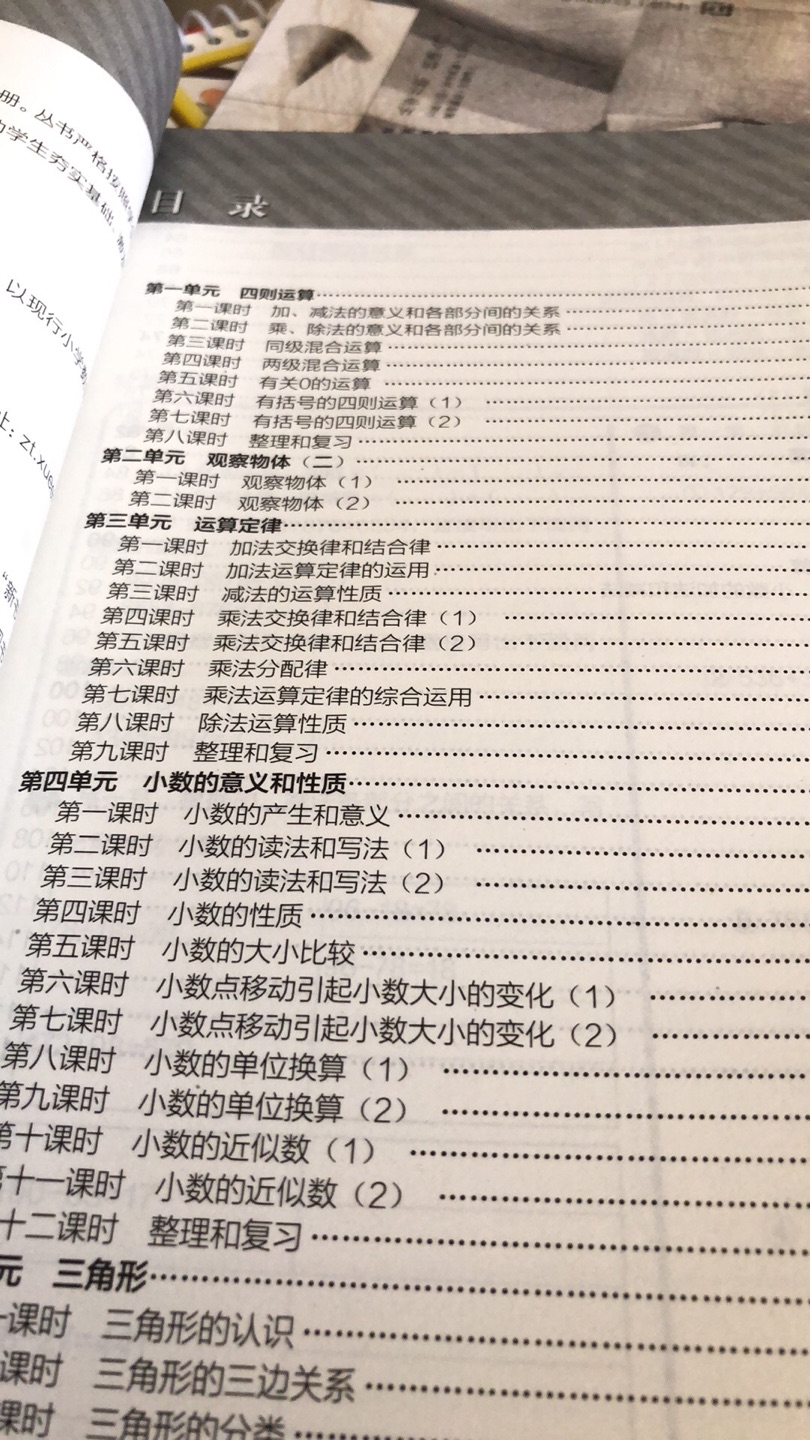 册。丛书严格按照
学生夯实基础
以现行小学教
目 录
第一单元 四则运算
第一课时 加、减法的意义和各部分间的关系
第二课时 乘、除法的意义和各部分间的关系
第三课时 同级混合运算
第四课时 两级混合运算
第五课时 有关0的运算
第六课时 有括号的四则运算（1）
第七课时 有括号的四则运算（2）
第八课时 整理和复习
第二单元 观察物体（二）
第一课时 观察物体（1）
第二课时 观察物体（2）
第三单元 运算定律
第一课时 加法交换律和结合律
第二课时 加法运算定律的运用
第三课时 减法的运算性质
第四课时 乘法交换律和结合律（1）
第五课时 乘法交换律和结合律（2）
第六课时 乘法分配律
第七课时 乘法运算定律的综合运用
第八课时 除法运算性质
第九课时 整理和复习
第四单元 小数的意义和性质
第一课时 小数的产生和意义
第二课时 小数的读法和写法（1）
第三课时 小数的读法和写法（2）
第四课时 小数的性质
第五课时 小数的大小比较
第六课时 小数点移动引起小数大小的变化（1）
第七课时 小数点移动引起小数大小的变化（2）
第八课时 小数的单位换算（1）
第九课时 小数的单位换算（2）
第十课时 小数的近似数（1）
十一课时 小数的近似数（2）
十二课时 整理和复习
元 三角形
一课时 三角形的认识
课时 三角形的三边关系
课时 三角形的分类